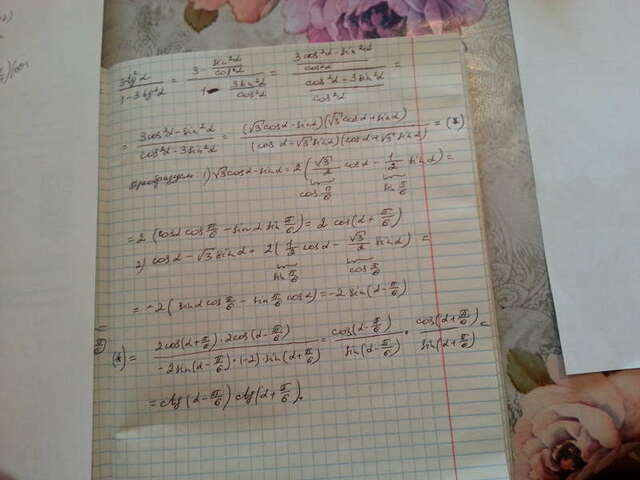 (3-tg²α)/(1-3tg²α) = (3 - sin²α/cos²α)/(1 - 3sin²α/cos²α) = ((3cos²α-sin²α)/cos²α)/((cos²α-3sin²α)/cos²α) =
= (3cos²α-sin²α)/(cos²α-3sin²α) = (√3cosα-sinα)(√3cosα+sinα)/(cosα-√3sinα)(cosα+√3sinα) = (*)
Преобразуем 1) √3cosα-sinα = 2(√3/2 cosα - 1/2 sinα) =
cos π/6 sin π/6
= 2 (cosα cos π/6 - sinα sin π/6) = 2 cos(α + π/6)
2) cosα - √3 sinα = 2(1/2 cosα - √3/2 sinα) =
sin π/6 cos π/6
= -2 (sinα cos π/6 - sin π/6 cosα) = -2 sin(α - π/6)
(*) = 2cos(α+π/6)·2cos(α-π/6)/-2sin(α-π/6)·(-2)·sin(α+π/6) = cos(α-π/6)/sin(α-π/6) · cos(α+π/6)/sin(α+π/6) =
= ctg(α-π/6) ctg(α+π/6).